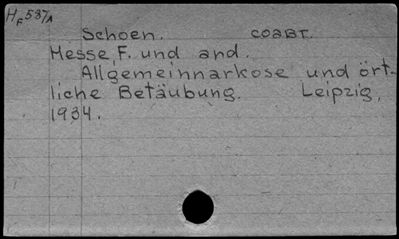 HF 587A
Schoen. соавт.
Messe, F. und and.
Allgemeinnarkose und ört-
liche Betäubung. Leipzig,
1934.